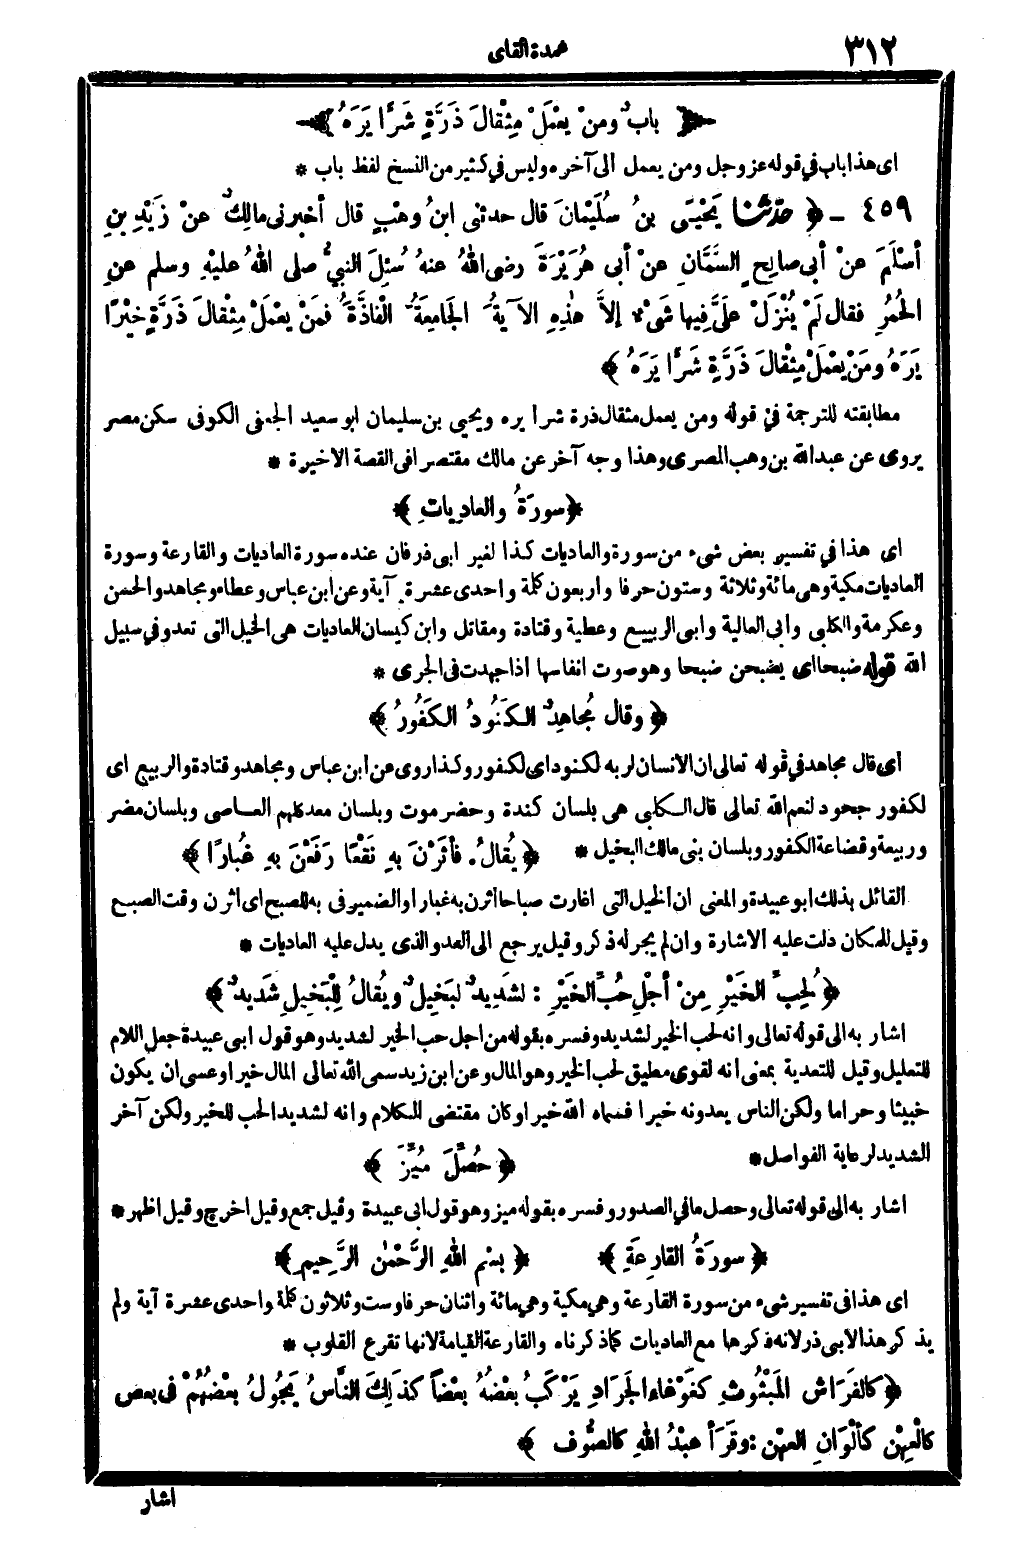 ٣١٢
عمدة القاى
﴿ بابٌ ومنْ يعْمَلْ مِثْقالَ ذَرَّةٍ شَرًّا يَرَهُ ﴾
اى هذا باب في قوله عز وجل ومن يعمل الى آخره وليس في كثير من النسخ لفظ باب *
٤٥٩ - ﴿ حدثنا يَحْيَى بنُ سُلَيْمانَ قال حدثنى ابنُ وهْبٍ قال أخبرنى مالِكٌ عنْ زَيْدِ بنِ
أسْلَمَ عنْ أبى صالِحٍ السَّمَّانِ عنْ أبى هُرَيْرَةَ رضى اللهُ عنهُ سُئِلَ النبىُّ صلى اللهُ عليْهِ وسلم عنِ
الحُمُرِ فقال لَمْ يُنْزَلْ عَلَىَّ فِيها شَىْءٌ إلاَّ هٰذِهِ الآيةُ الجَامِعَةُ الفَاذَّةُ فمَنْ يعْمَلْ مِثْقالَ ذَرَّةٍ خَيْرًا
يَرَهُ ومَنْ يعْمَلْ مِثْقالَ ذَرَّةٍ شَرًّا يَرَهُ ﴾
مطابقته للترجمة في قوله ومن يعمل مثقال ذرة شرا يره ويحيى بن سليمان ابو سعيد الجعفى الكوفى سكن مصر
يروى عن عبدالله بن وهب المصرى وهذا وجه آخر عن مالك مقتصرا فى القصة الاخيرة *
﴿ سورَةُ والعادِياتِ ﴾
اى هذا في تفسير بعض شىء من سورة والعاديات كذا لغير ابى ذر فان عنده سورة العاديات والقارعة وسورة
العاديات مكية وهى مائة وثلاثة وستون حرفا واربعون كلمة واحدى عشرة آية وعن ابن عباس وعطاء ومجاهد والحسن
وعكرمة والكلبى وأبى العالية وابى الربيع وعطية وقتادة ومقاتل وابن كيسان العاديات هى الخيل التى تعدو في سبيل
الله قوله ضبحا اى يضبحن ضبحا وهو صوت انفاسها اذا جهدت فى الجرى *
﴿ وقال مُجاهِدٌ الكَنُودُ الكَفُورُ ﴾
اى قال مجاهد في قوله تعالى ان الانسان لربه لكنود اى لكفور وكذا روى عن ابن عباس ومجاهد وقتادة والربيع اى
لكفور جحود لنعم الله تعالى قال الكلبى هى بلسان كندة وحضرموت وبلسان معد كلهم العاصى وبلسان مضر
وربيعة وقضاعة الكفور وبلسان بنى مالك البخيل * ﴿ يُقالُ. فأثَرْنَ بهِ نَقْعًا رَفَعْنَ بهِ غُبارًا ﴾
القائل بذلك ابو عبيدة والمعنى ان الخيل التى اغارت صباحا أثرن به غبارا والضمير فى به للصبح اى اثرن وقت الصبح
وقيل للمكان دلت عليه الاشارة وان لم يجر له ذكر وقيل يرجع الى العدو الذى يدل عليه العاديات *
﴿ لُحِبِّ الخَيْرِ مِنْ أجْلِ حُبِّ الخَيْرِ : لشَدِيدٌ لبَخِيلٌ ويُقالُ لِلْبَخِيلِ شَدِيدٌ ﴾
اشار به الى قوله تعالى وانه لحب الخير لشديد وفسره بقوله من اجل حب الخير لشديد وهو قول ابى عبيدة جعل اللام
للتعليل وقيل للتعدية بمعنى انه لقوى مطيق لحب الخير وهو المال وعن ابن زيد سمى الله تعالى المال خيرا وعسى ان يكون
خبيثا وحراما ولكن الناس يعدونه خيرا فسماه الله خيرا وكان مقتضى الكلام وانه لشديد الحب للخير ولكن آخر
الشديد لرعاية الفواصل * ﴿ حُصِّلَ مُيِّزَ ﴾
اشار به الى قوله تعالى وحصل ما في الصدور وفسره بقوله ميز وهو قول ابى عبيدة وقيل جمع وقيل اخرج وقيل اظهر *
﴿ سورَةُ القارِعَةِ ﴾ ﴿ بِسْمِ اللهِ الرَّحْمٰنِ الرَّحِيمِ ﴾
اى هذا فى تفسير شىء من سورة القارعة وهي مكية وهي مائة واثنان حرفا وست وثلاثون كلمة واحدى عشرة آية ولم
يذكر هذا لابى ذر لانه ذكرها مع العاديات كما ذكرناه والقارعة القيامة لانها تقرع القلوب *
﴿ كالفَرَاشِ المَبْثُوثِ كغَوْغاءِ الجَرَادِ يَرْكَبُ بعْضُهُ بعْضًا كذٰلِكَ النَّاسُ يَجُولُ بعْضُهُمْ فى بعضٍ
كالْعِهْنِ كألْوَانِ العِهْنِ : وقَرَأ عبْدُ اللهِ كالصُّوفِ ﴾
اشار